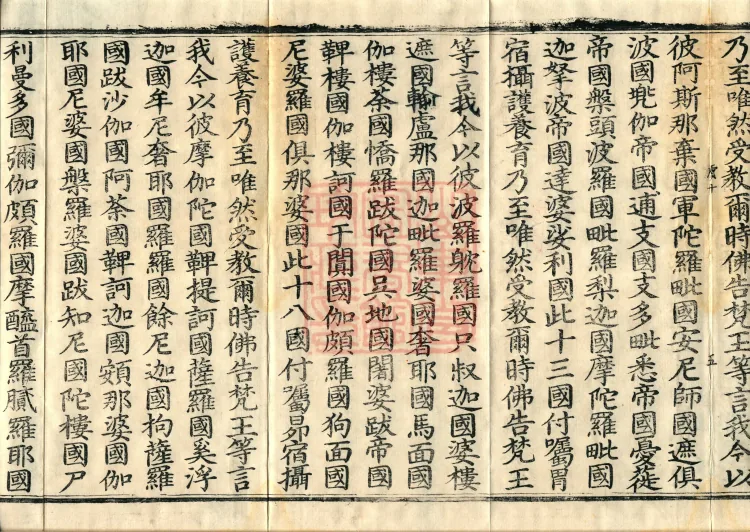 乃至唯然受教爾時佛告梵王等言我今以
彼阿斯那棄國軍陀羅毗國安尼師國遮俱
波國兠伽帝國逋支國支多毗悉帝國憂蓰
帝國槃頭波羅國毗羅梨迦國摩陀羅毗國
迦孥波帝國達婆娑利國此十三國付囑胃
宿攝護養育乃至唯然受教爾時佛告梵王
等言我今以彼波羅躭羅國只叔迦國婆樓
遮國輸盧那國迦毗羅婆國奢耶國馬面國
伽樓荼國憍羅跋陀國吳地國闍婆跋帝國
鞞樓國伽樓訶國于闐國伽頗羅國狗面國
尼婆羅國俱那婆國此十八國付囑昴宿攝
護養育乃至唯然受教爾時佛告梵王等言
我今以彼摩伽陀國鞞提訶國薩羅國奚浮
迦國牟尼奢耶國羅羅國餘尼迦國拘薩羅
國跋沙伽國阿荼國鞞訶迦國頞那婆國伽
耶國尼婆國槃羅婆國跋知尼國陀樓國尸
利曼多國彌伽頗羅國摩醯首羅膩羅耶國
五